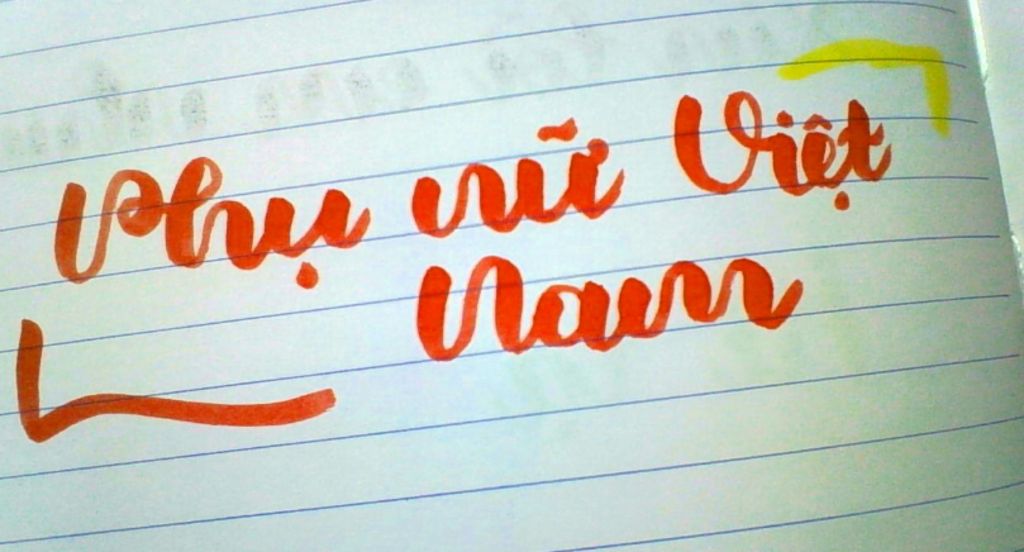 Phụ nữ Việt
Nam